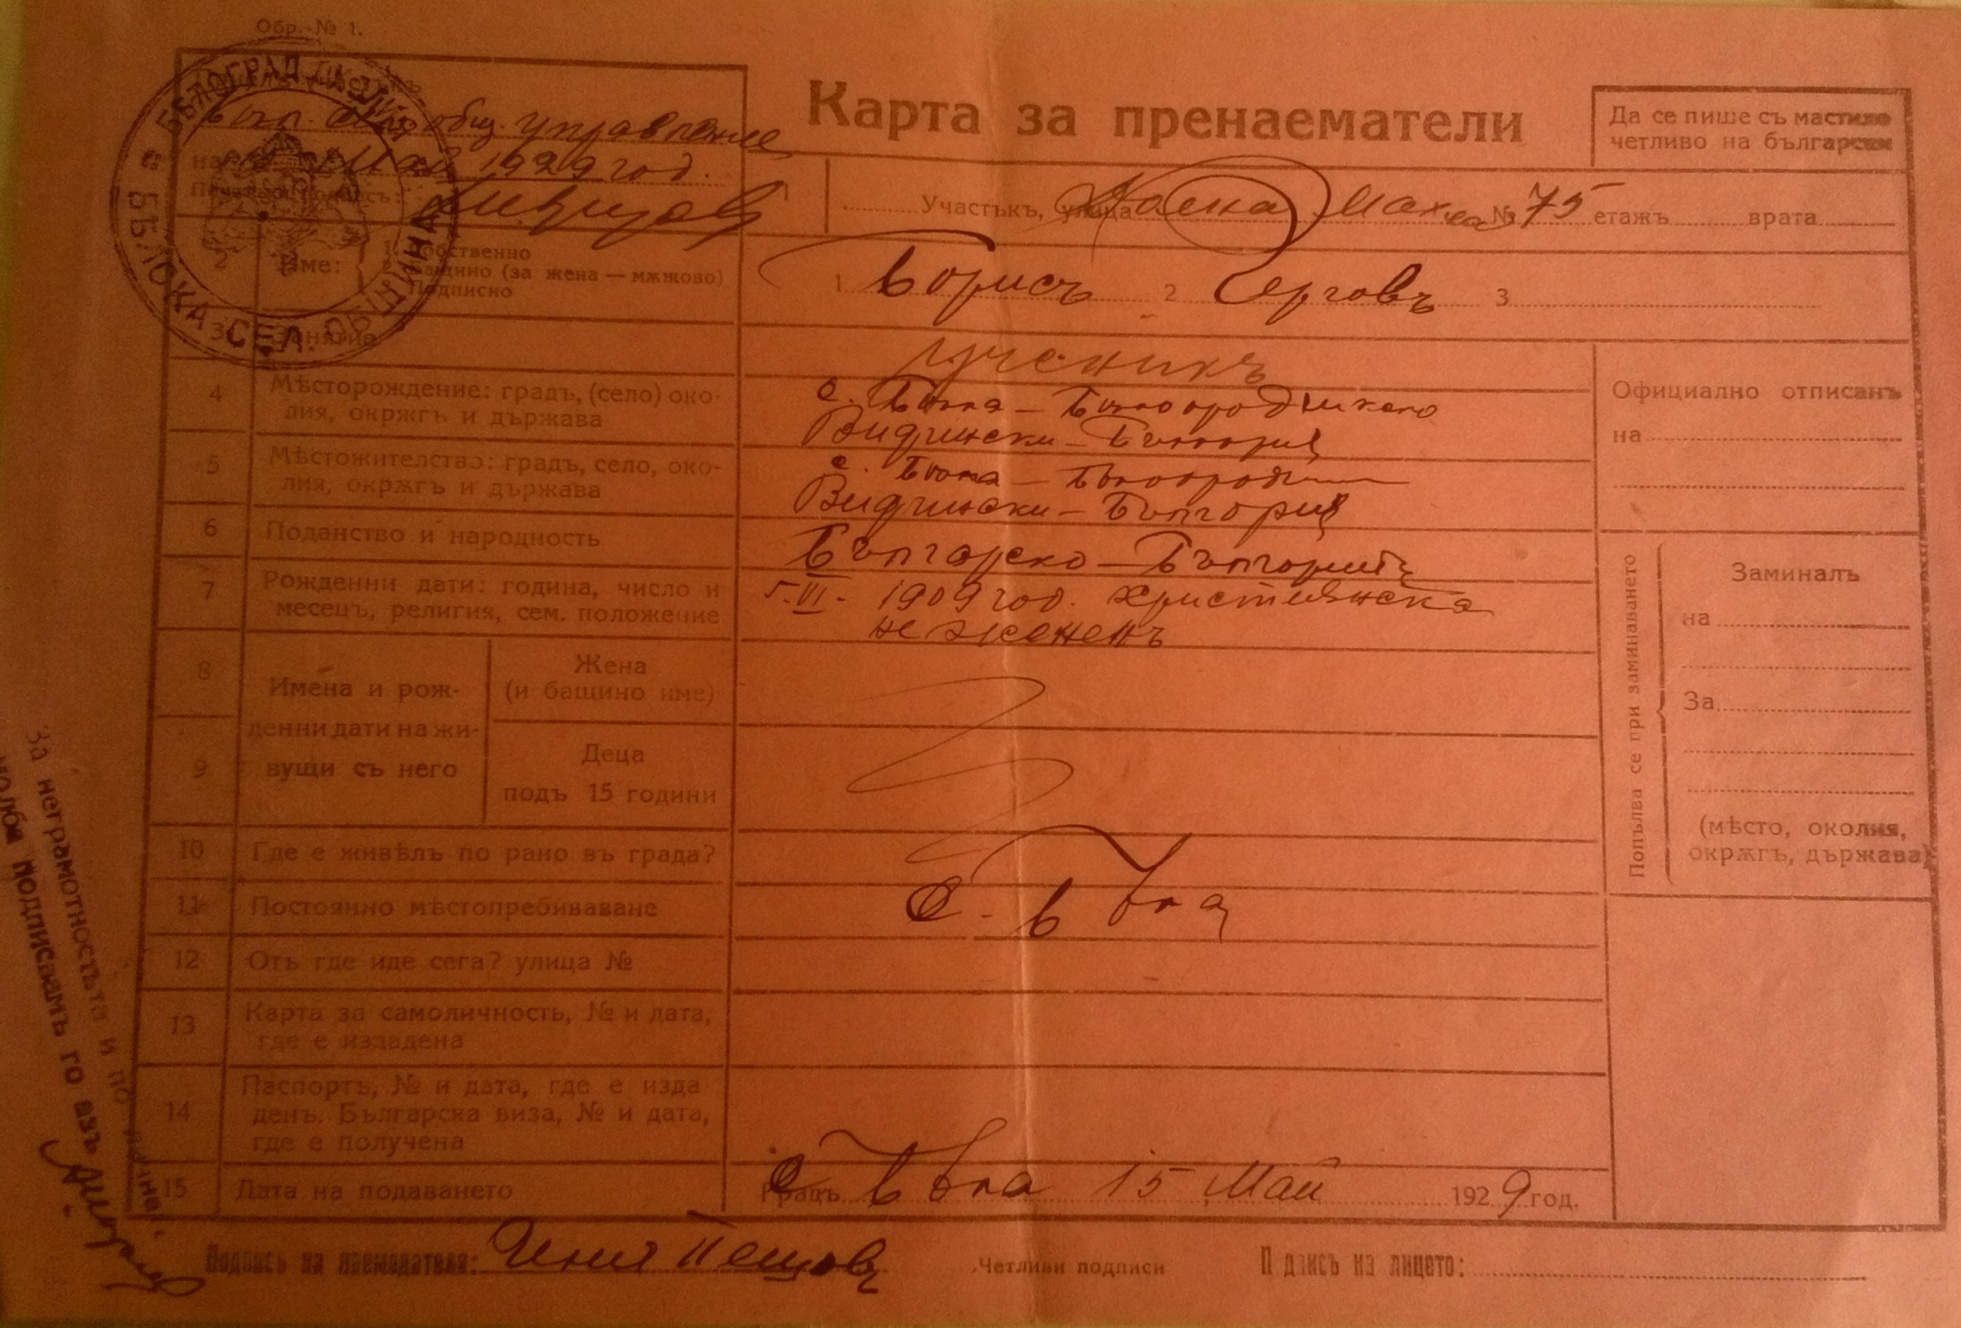 Обр. № 1.
Карта за пренаематели
Да се пише съ мастило
четливо на български
общ. управление
на Май 1929 год.
БѢЛОГРАД. ОКОЛИЯ
БѢЛСКА СЕЛ. ОБЩИНА
1 Участъкъ, улица Долна Мах. № 75 етажъ врата
2 Име: 1. Собствено
2. Бащино (за жена — мѫжово)
3. Подписно
1 Борисъ 2 Серговъ 3
3 Занятие
ученикъ
4 Мѣсторождение: градъ, (село) око-
лия, окрѫгъ и държава
с. Бѣла —
Видински — България
5 Мѣстожителство: градъ, село, око-
лия, окрѫгъ и държава
с. Бѣла —
Видински — България
6 Поданство и народность
Българско — Българинъ
7 Рожденни дати: година, число и
месецъ, религия, сем. положение
1909 год. християнска
неженень
8 Имена и рож-
денни дати на жи-
9 вущи съ него
Жена
(и бащино име)
Деца
подъ 15 години
10 Где е живѣлъ по рано въ града?
11 Постоянно мѣстопребиваване
с. Бѣла
12 Отъ где иде сега? улица №
13 Карта за самоличность, № и дата,
где е издадена
14 Паспортъ, № и дата, где е изда
денъ. Българска виза, № и дата,
где е получена
15 Дата на подаването
Градъ с. Бѣла 15 Май 1929 год.
Официално отписанъ
на
Попълва се при заминаването
Заминалъ
на
За
(мѣсто, околия,
окрѫгъ, държава)
Подпись на наемодателя:
Четливи подписи
Подпись на лицето:
За неграмотностьта и по
молба подписвамъ го азъ